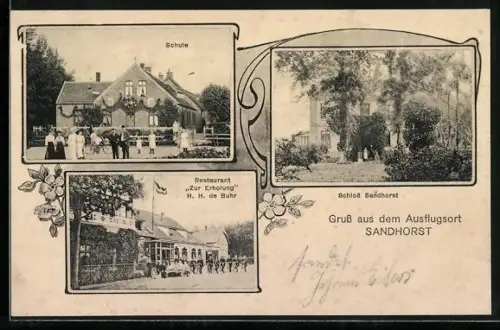 Schule
Schloß Sandhorst
Restaurant
„Zur Erholung"
H. H. de Buhr
Gruß aus dem Ausflugsort
SANDHORST